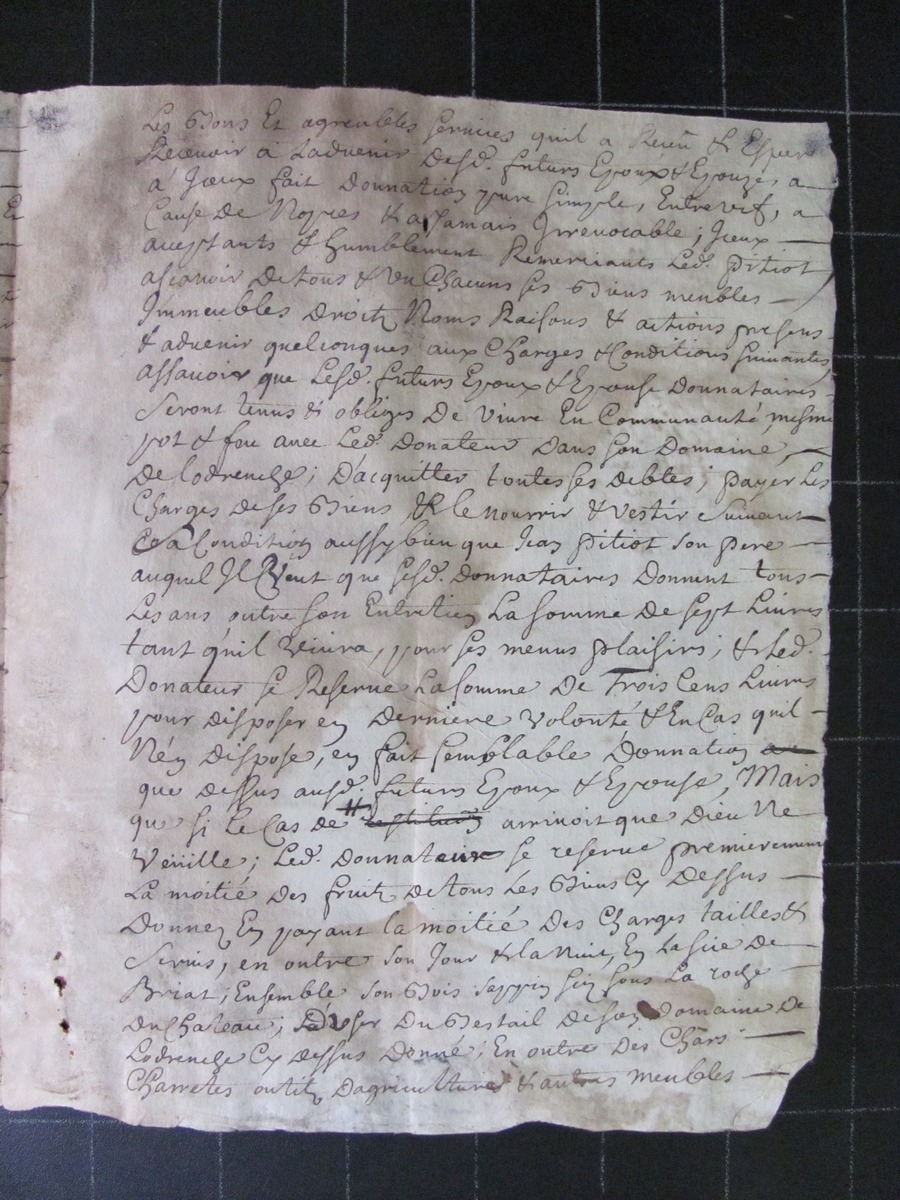 Les Bons Et agreables services quil a Receu & Espere
Recevoir a Ladvenir Desd. futurs Epoux & Epouze, a
a Iceux fait Donnation pure simple, Entre vif, a
Cause de Nopces & a Jamais Irrevocable; Iceux
acceptants & humblement Remerciants Led. pitiot
ascavoir De tous & Un Chacuns ses Biens meubles
Immeubles Droitz Noms Raisons & actions presens
& advenir quelconques aux Charges & Conditions suivantes
Assavoir que Lesd. futurs Epoux & Epouse Donnataires
Seront tenus & obliges De vivre En Communauté, mesme
pot & feu avec Led. Donateur Dans son Domaine,
De lodrenche; D'acquitter toutes ses debtes; payer Les
Charges de ses Biens & le nourrir & vestir Suivant
sa Condition aussy bien que Jean pitiot son pere
auquel Il Veut que Lesd. Donnataires Donnent tous
Les ans outre son Entretien La somme De sept Livres
tant qu'il vivra, pour ses menus plaisirs; & Led.
Donateur se Reserve La somme De Trois Cens Livres
pour disposer en Derniere volonté & En Cas quil
N'en dispose, en fait semblable Donnation
que dessus ausd. futurs Epoux & Epouse, Mais
que si Le Cas de # arrivoit que Dieu Ne
Veuille; Led. Donnateur se reserve premierement
La moitié Des fruitz de tous Les Biens Cy Dessus
Donnez En payant la moitié Des Charges tailles &
Servis, en outre son Jour & la Nuit, En La sie De
Briat; Ensemble son Bois sappin sis sous La roche
du Chateau; & D'user Du Bestail De son Domaine De
Lodrenche Cy dessus Donné; En outre Des Chars
Charretes outitz Dagriculture & autres meubles